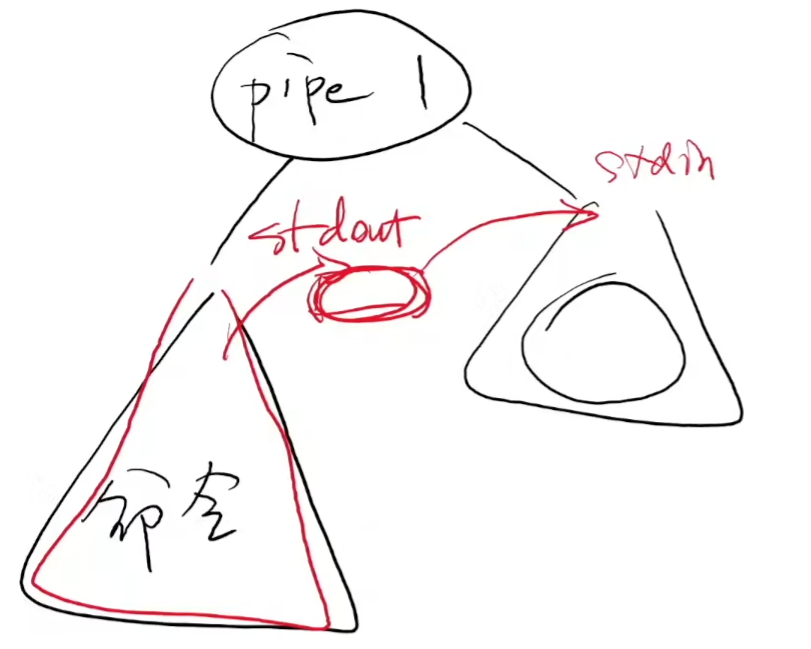 pipe 1
stdin
stdout
命令